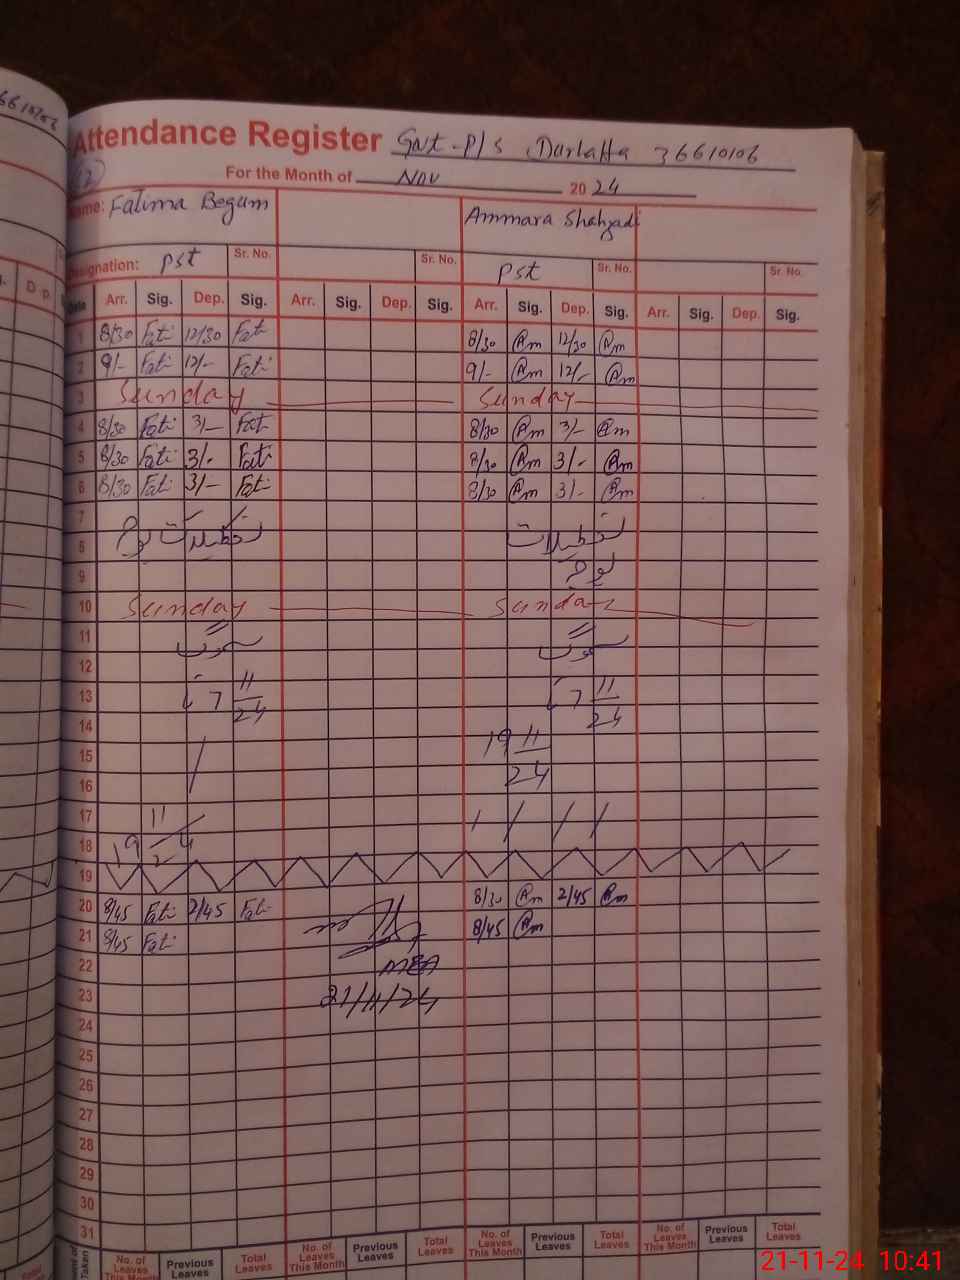 Attendance Register GNt-P/S Durlatta 36610106
For the Month of Nov 2024
Name: Fatima Begum Ammara Shahzadi
Designation: Pst Sr. No. Sr. No. Pst Sr. No. Sr. No.
Date Arr. Sig. Dep. Sig. Arr. Sig. Dep. Sig. Arr. Sig. Dep. Sig. Arr. Sig. Dep. Sig.
1 8/30 Fati 12/30 Fati 8/30 Am 12/30 Am
2 9/- Fati 12/- Fati 9/- Am 12/- Am
3 Sunday Sunday
4 8/30 Fati 3/- Fati 8/30 Am 3/- Am
5 8/30 Fati 3/- Fati 8/30 Am 3/- Am
6 8/30 Fati 3/- Fati 8/30 Am 3/- Am
7
8 تعطیلات تعطیلات
9
10 Sunday Sunday
11
12
13 7 11/24 7 11/24
14
15 19 11/24
16
17
18 19 11/24
19
20 8/45 Fati 2/45 Fati 8/30 Am 2/45 Am
21 8/45 Fati 8/45 Am
22
23 21/11/24
24
25
26
27
28
29
30
31
No. of Leaves This Month Previous Leaves Total Leaves No. of Leaves This Month Previous Leaves Total Leaves No. of Leaves This Month Previous Leaves Total Leaves No. of Leaves This Month Previous Leaves Total Leaves
21-11-24 10:41